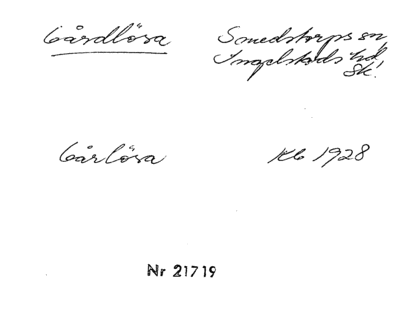 Gårdlösa
Smedstorps sn,
Ingelstads hd,
Sk.
Gårlösa
Kb 1928
Nr 21719